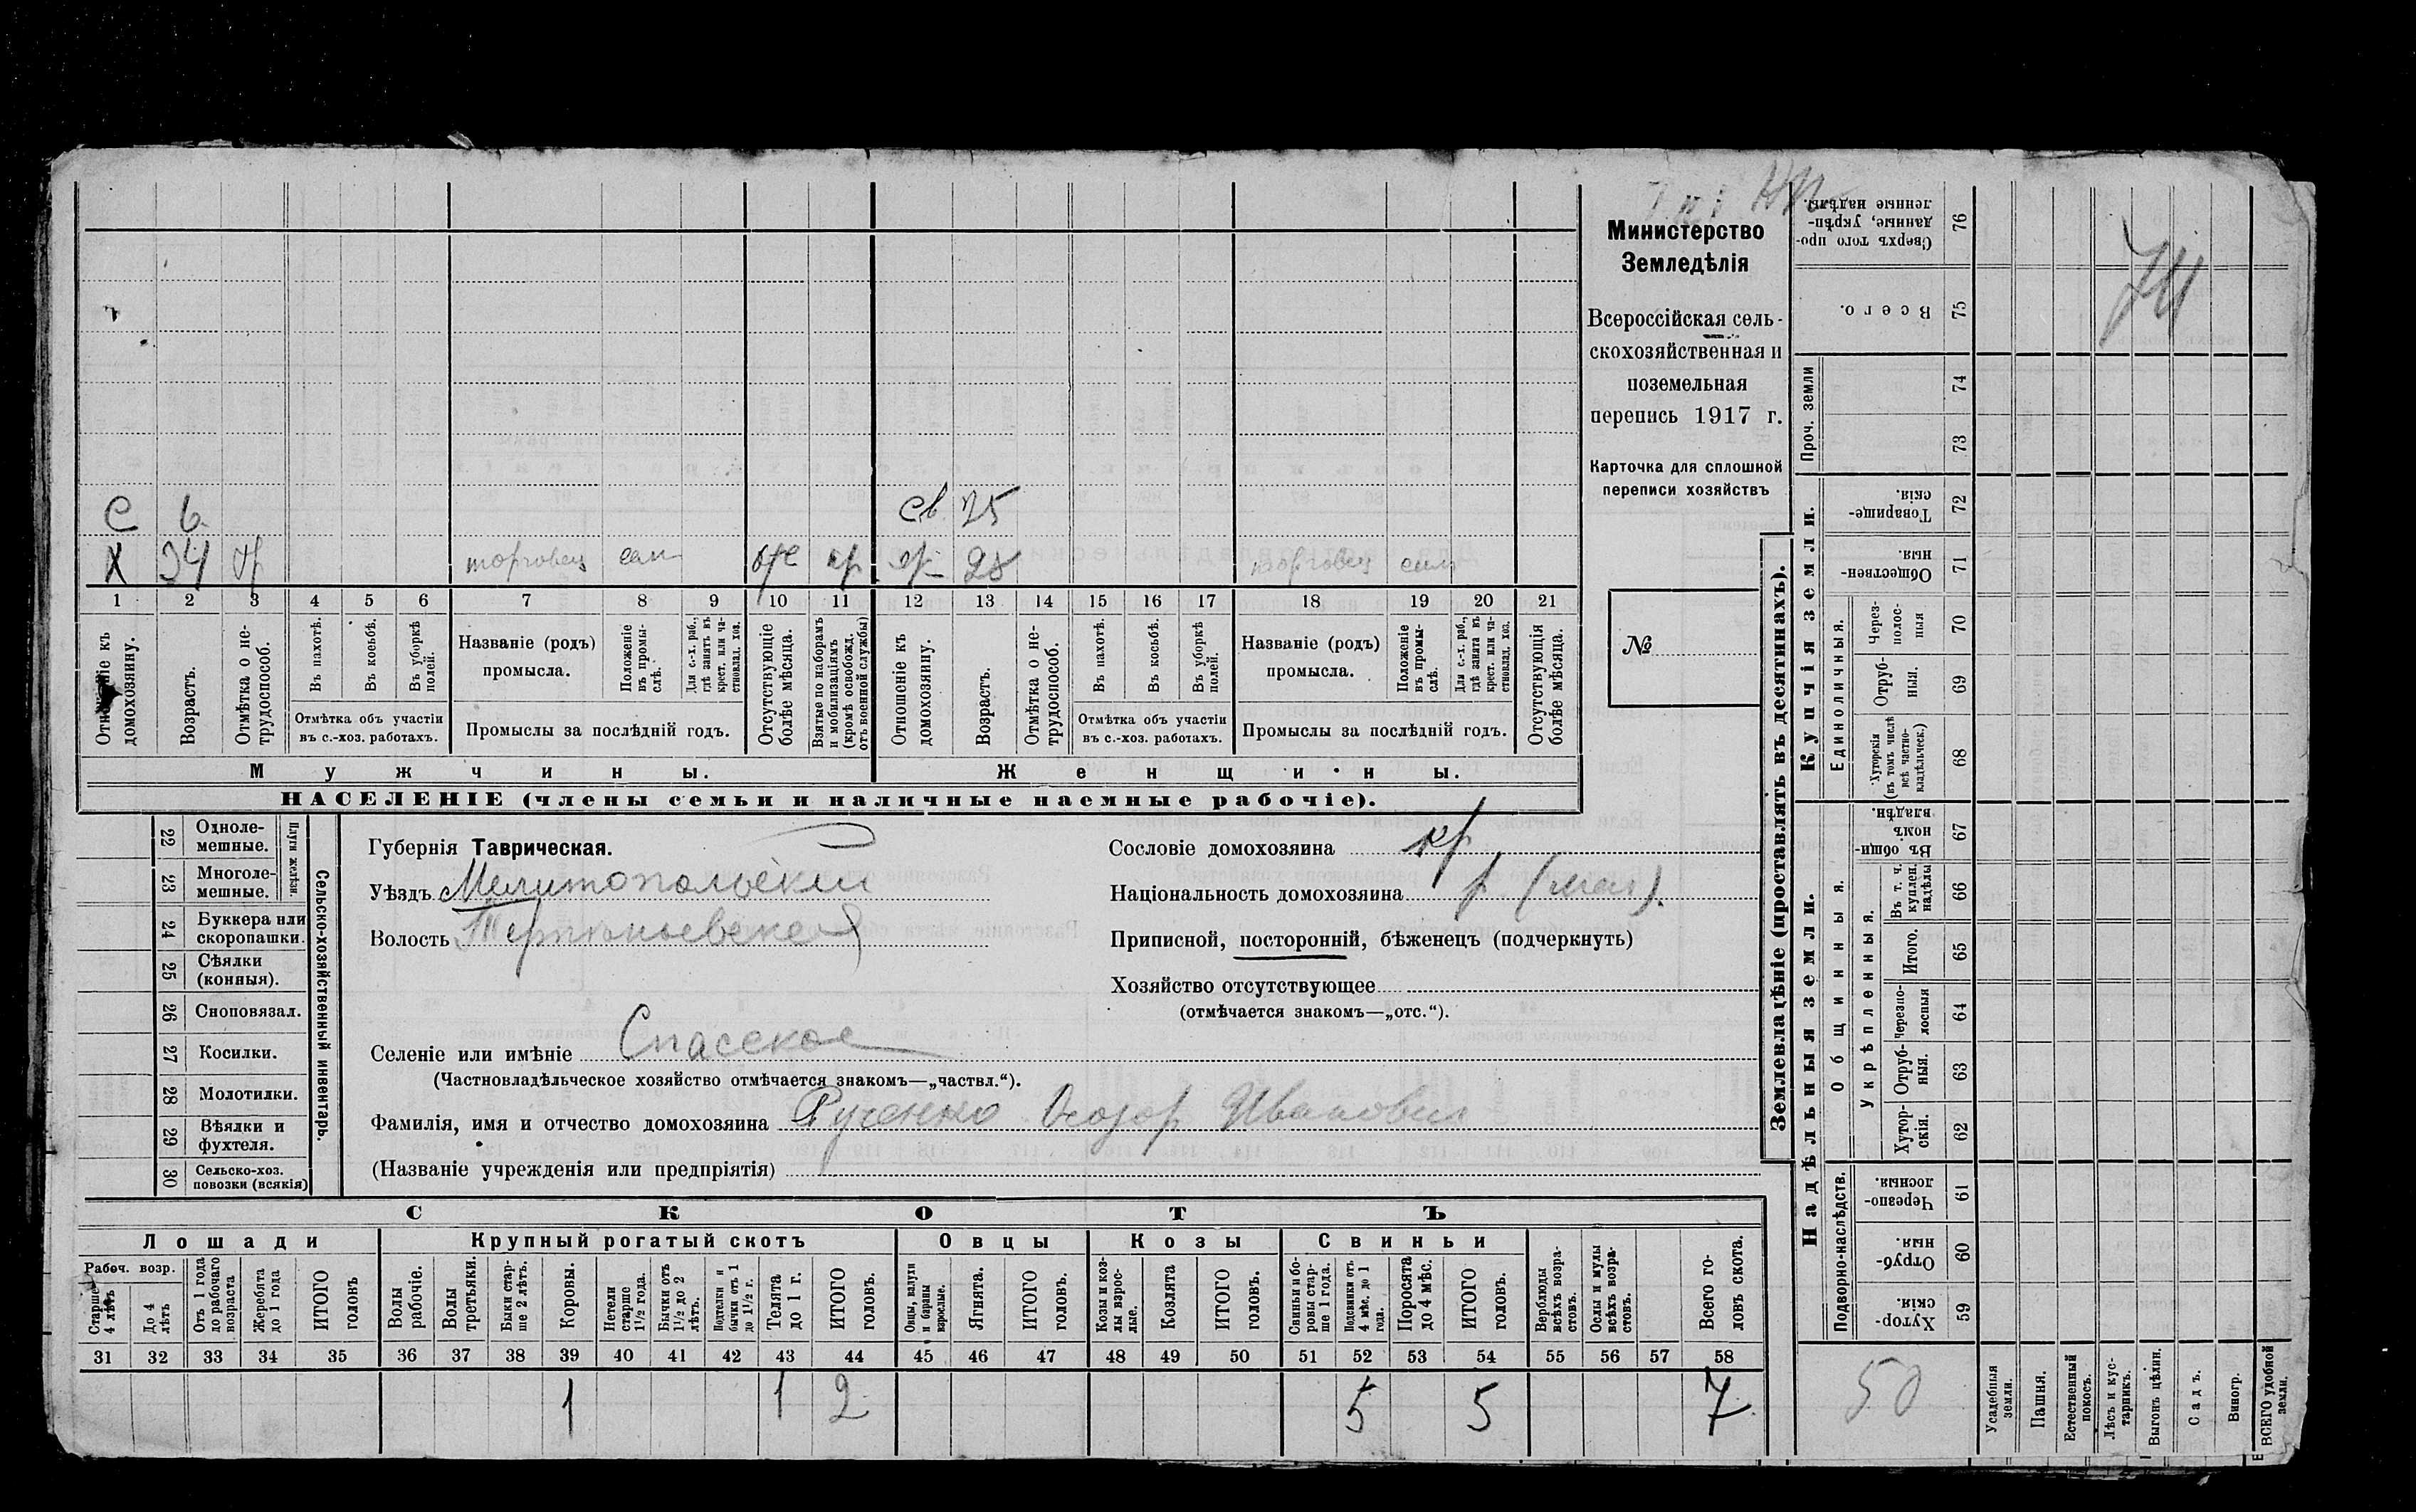 С 6 св 25
Х 34 торговец сам кр 28 торговец сам
1 2 3 4 5 6 7 8 9 10 11 12 13 14 15 16 17 18 19 20 21
Отношеніе къ домохозяину.
Возрастъ.
Отмѣтка о нетрудоспособ.
Въ пахотѣ.
Въ косьбѣ.
Въ уборкѣ полей.
Отмѣтка объ участіи
въ с.-хоз. работахъ.
Названіе (родъ)
промысла.
Положеніе въ промыслѣ.
Для с.-х. раб., гдѣ занятъ въ крест. или частновлад. хоз.
Промыслы за послѣдній годъ.
Отсутствующіе болѣе мѣсяца.
Взятые по наборамъ и мобилизаціямъ (кромѣ освобожд. отъ военной службы)
Отношеніе къ домохозяину.
Возрастъ.
Отмѣтка о нетрудоспособ.
Въ пахотѣ.
Въ косьбѣ.
Въ уборкѣ полей.
Отмѣтка объ участіи
въ с.-хоз. работахъ.
Названіе (родъ)
промысла.
Положеніе въ промыслѣ.
Для с.-х. раб., гдѣ занята въ крест. или частновлад. хоз.
Промыслы за послѣдній годъ.
Отсутствующія болѣе мѣсяца.
Мужчины.
Женщины.
НАСЕЛЕНІЕ (члены семьи и наличные наемные рабочіе).
Министерство
Земледѣлія
Всероссійская сель-
скохозяйственная и
поземельная
перепись 1917 г.
Карточка для сплошной
переписи хозяйствъ
№
Сельско-хозяйственный инвентарь.
Плуги желѣзн.
22 Одноле-
мешные.
23 Многоле-
мешные.
24 Буккера или
скоропашки.
25 Сѣялки
(конныя).
26 Сноповязал.
27 Косилки.
28 Молотилки.
29 Вѣялки и
фухтеля.
30 Сельско-хоз.
повозки (всякія)
Губернія Таврическая.
Уѣздъ Мелитопольскій
Волость
Селеніе или имѣніе Спасское
(Частновладѣльческое хозяйство отмѣчается знакомъ—„частвл.“).
Фамилія, имя и отчество домохозяина Руденко Ѳедор Иванович
(Названіе учрежденія или предпріятія)
Сословіе домохозяина кр
Національность домохозяина р (мал).
Приписной, посторонній, бѣженецъ (подчеркнуть)
Хозяйство отсутствующее
(отмѣчается знакомъ—„отс.“).
СКОТЪ
Лошади
Крупный рогатый скотъ
Овцы
Козы
Свиньи
Рабоч. возр.
Старше 4 лѣтъ
До 4 лѣтъ
Отъ 1 года до рабочаго возраста
Жеребята до 1 года
ИТОГО головъ
Волы рабочіе.
Волы третьяки.
Быки старше 2 лѣтъ.
Коровы.
Нетели старше 1½ года.
Бычки отъ 1½ до 2 лѣтъ.
Подтелки и бычки отъ 1 до 1½ г.
Телята до 1 г.
ИТОГО головъ.
Овцы, валухи и бараны взрослые.
Ягнята.
ИТОГО головъ.
Козы и козлы взрослые.
Козлята
ИТОГО головъ.
Свиньи и боровы старше 1 года.
Подсвинки отъ 4 мѣс. до 1 года.
Поросята до 4 мѣс.
ИТОГО головъ.
Верблюды всѣхъ возрастовъ.
Ослы и мулы всѣхъ возрастовъ.
Всего головъ скота.
31 32 33 34 35 36 37 38 39 40 41 42 43 44 45 46 47 48 49 50 51 52 53 54 55 56 57 58
1 1 2 5 5 7
Землевладѣніе (проставлять въ десятинахъ).
Купчія земли.
Надѣльныя земли.
Сверхъ того проданные, укрѣпленные надѣлы. 76
Всего. 75
Проч. земли 74 73
Товарищескія. 72
Общественныя. 71
Единоличныя.
Черезполосныя 70
Отрубныя. 69
Хуторскія (въ томъ числѣ всѣ частновладѣльческ.) 68
Общинныя.
Въ общинномъ владѣн. 67
Укрѣпленныя.
Въ т. ч. куплен. надѣлы 66
Итого. 65
Черезполосныя 64
Отрубныя. 63
Хуторскія. 62
Подворно-наслѣдств.
Черезполосныя. 61
Отрубныя. 60
Хуторскія. 59
50
Усадебныя земли.
Пашня.
Естественный покосъ.
Лѣсъ и кустарникъ.
Выгонъ цѣлин.
Садъ.
Виногр.
ВСЕГО удобной земли.